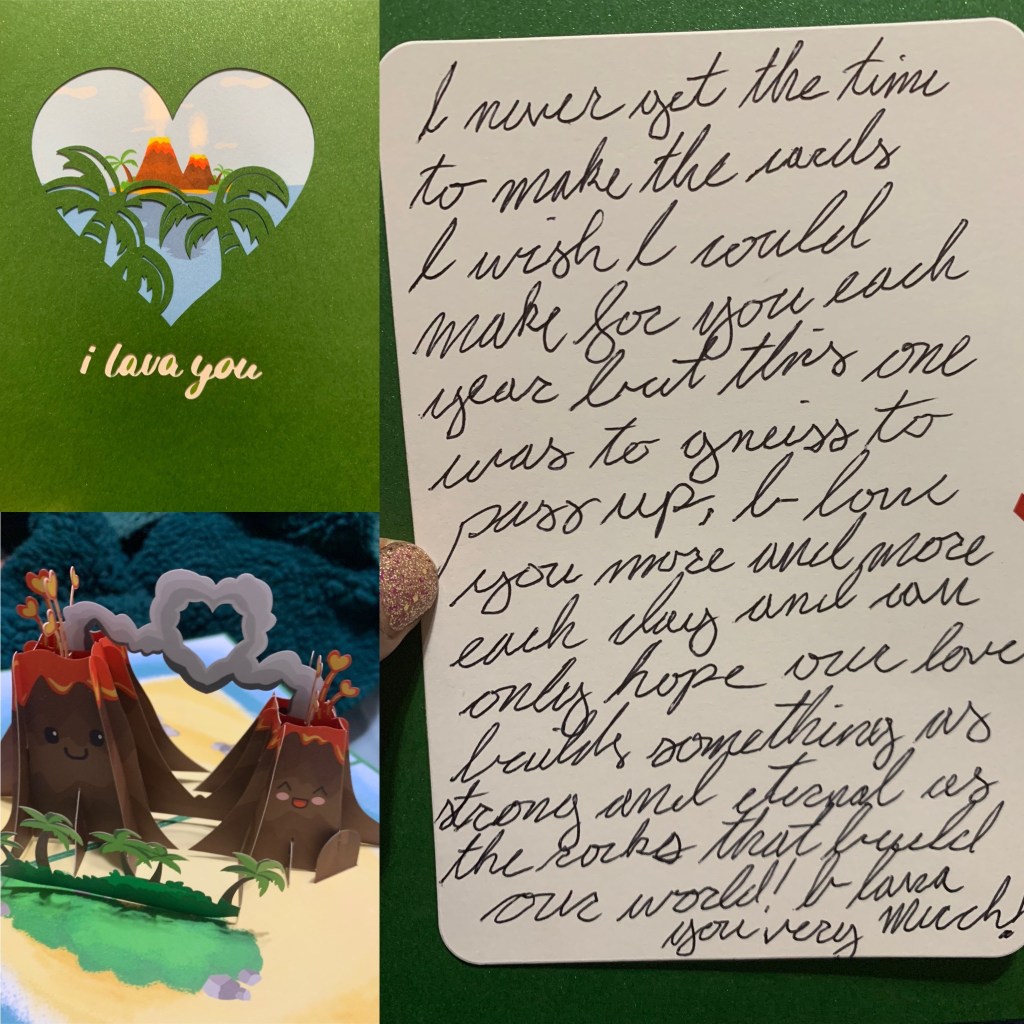 i lava you
I never get the time
to make the cards
I wish I could
make for you each
year but this one
was to gneiss to
pass up, I love
you more and more
each day and can
only hope our love
builds something as
strong and eternal as
the rocks that build
our world! I lava
you very Much!